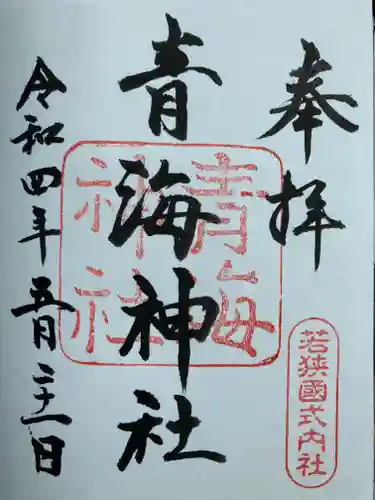 奉拝
若狭國式内社
青海神社
青海
神社
令和四年五月二十一日